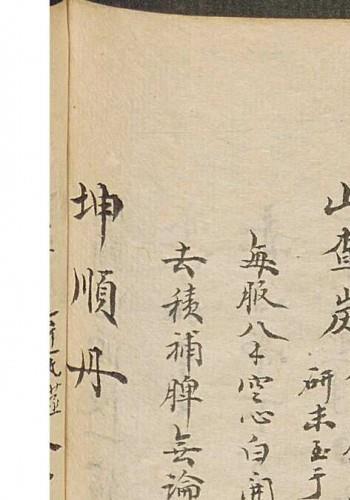 山查炭
研末至于
每服八半空心白開
去積補脾無論
坤順丹